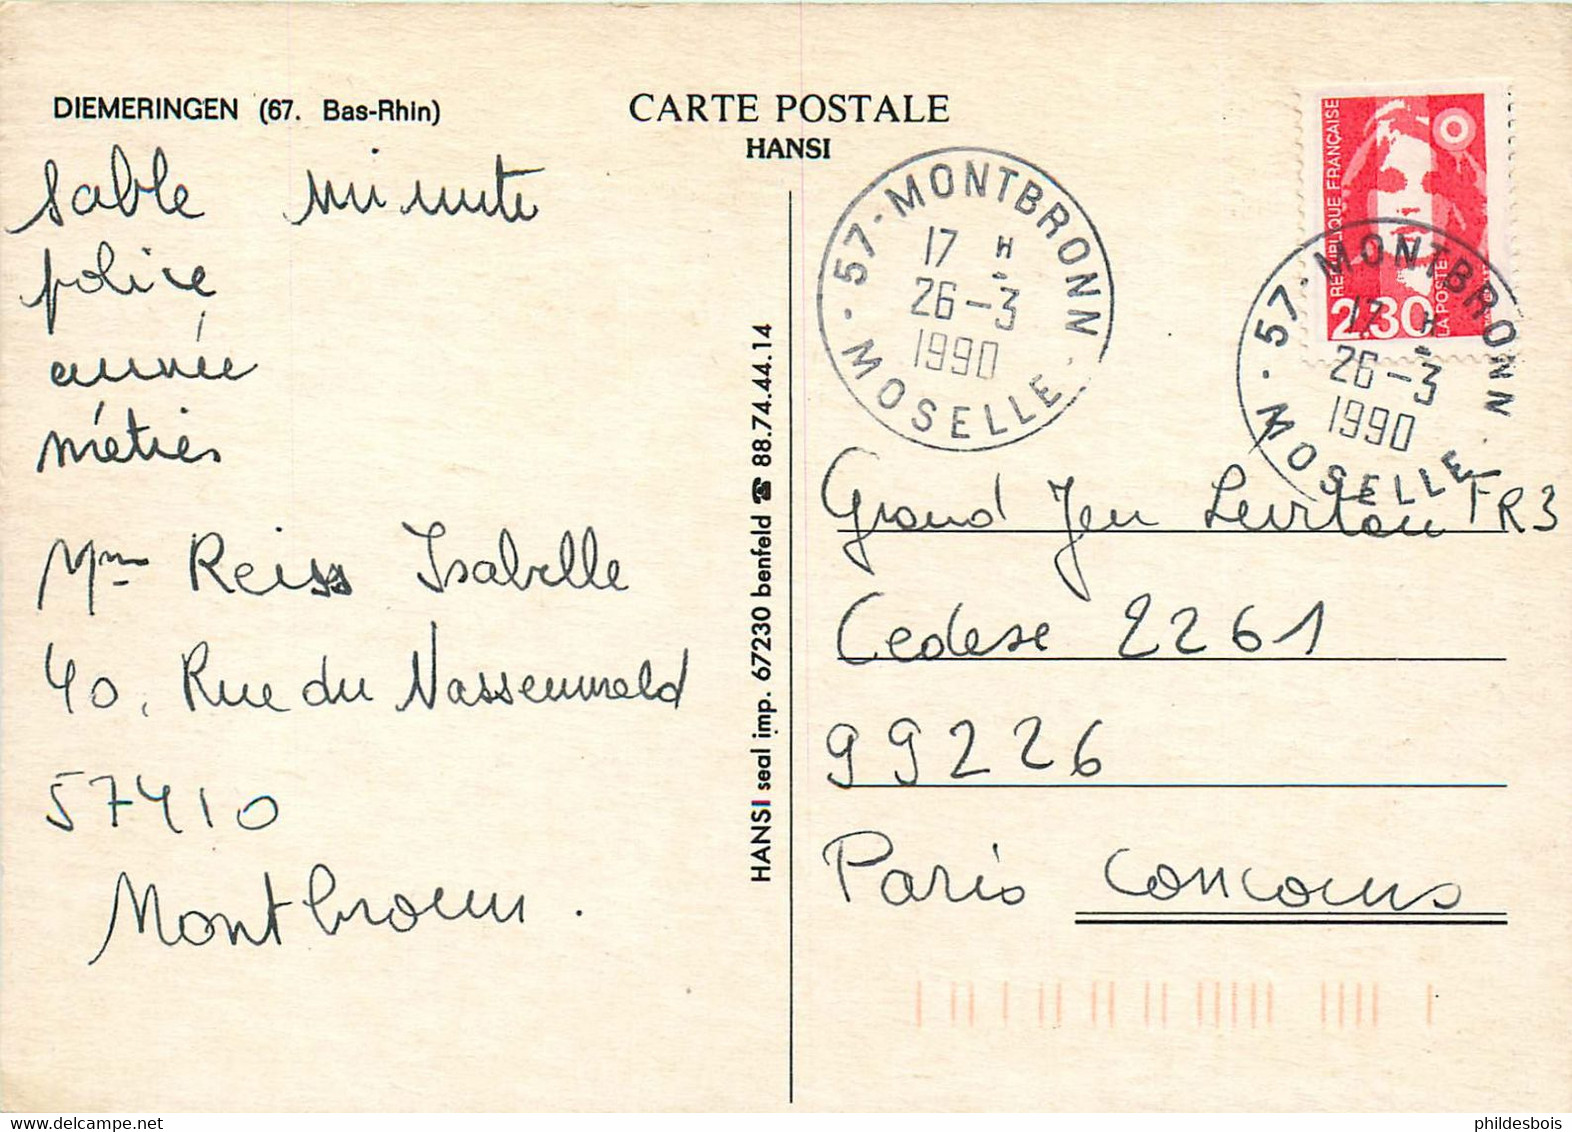 DIEMERINGEN (67. Bas-Rhin)
CARTE POSTALE
HANSI
sable minute
police
année
métier
Mme Reiss Isabelle
40, Rue du Nassenwald
57410
Montbronn.
HANSI seal imp. 67230 benfeld ☎ 88.74.44.14
57 - MONTBRONN
17 H
26 - 3
1990
MOSELLE
RÉPUBLIQUE FRANÇAISE
2,30
LA POSTE
57 - MONTBRONN
17 H
26 - 3
1990
MOSELLE
Grand Jeu FR3
Cedese 2261
99226
Paris Concours
phildesbois